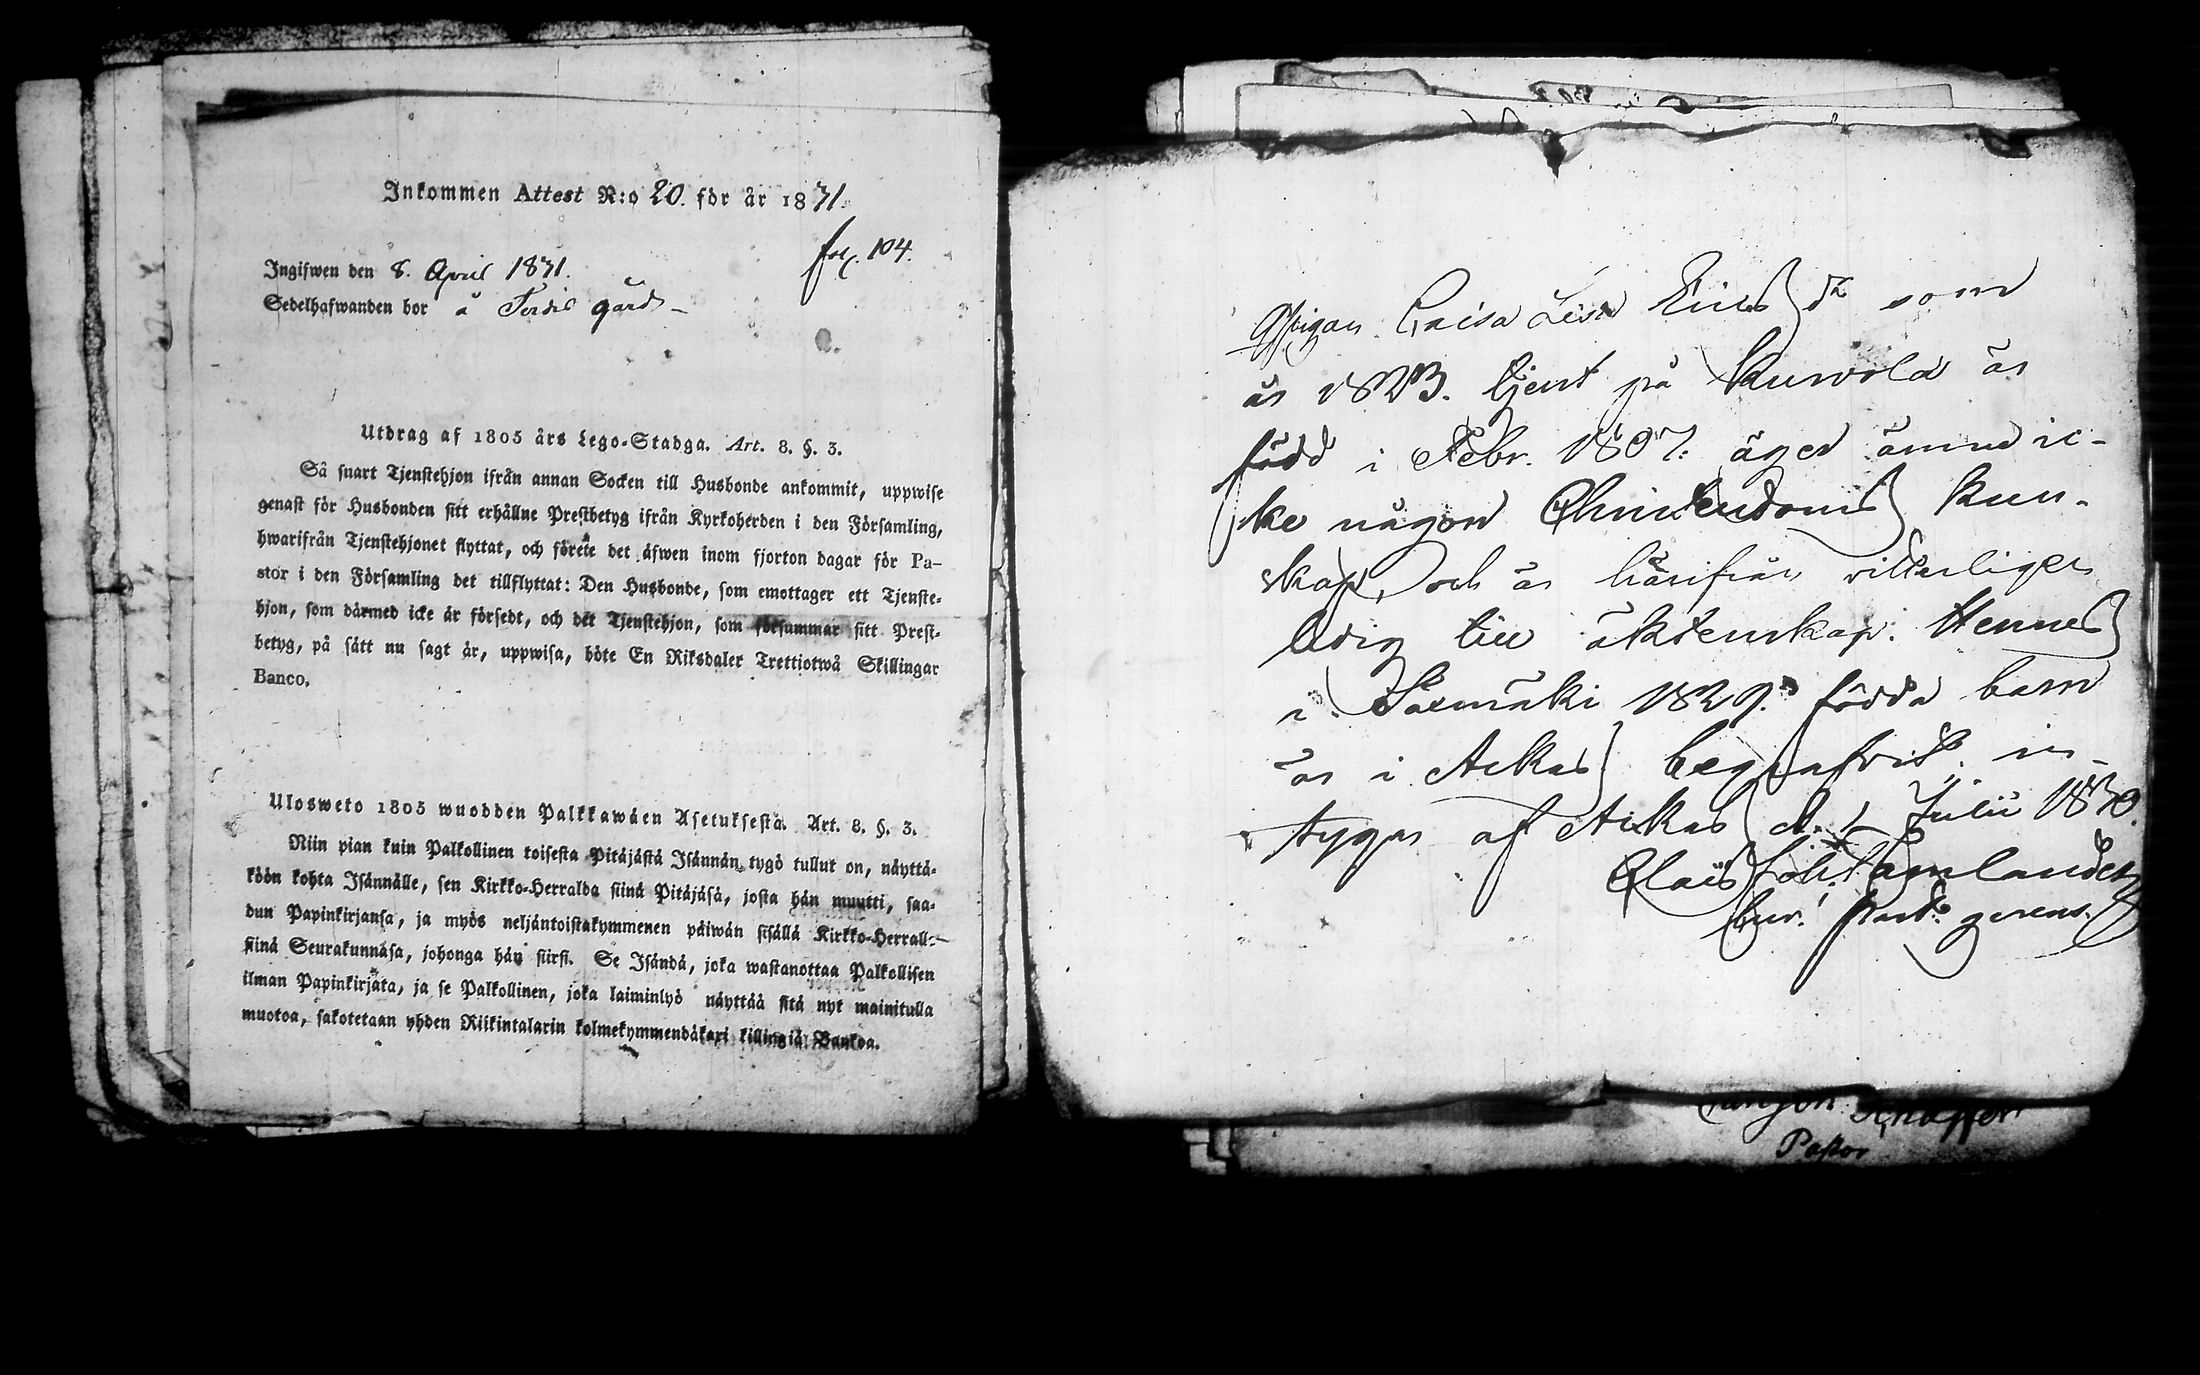 Inkommen Attest N:o 20. för år 1831.
fol. 104.
Ingifwen den 8. April 1831.
Sedelhafwanden bor å gård
Utdrag af 1805 års Lego-Stadga. Art. 8. §. 3.
Så snart Tjenstehjon ifrån annan Socken till Husbonde ankommit, uppwise
genast för Husbonden sitt erhållne Prestbetyg ifrån Kyrkoherden i den Församling,
hwarifrån Tjenstehjonet flyttat, och förete det äfwen inom fjorton dagar för Pa-
stor i den Församling det tillflyttat: Den Husbonde, som emottager ett Tjenste-
hjon, som därmed icke är försedt, och det Tjenstehjon, som försummar sitt Prest-
betyg, på sätt nu sagt är, uppwisa, böte En Riksdaler Trettiotwå Skillingar
Banco.
Ulosweto 1805 wuodden Palkkawäen Asetuksesta. Art. 8. §. 3.
Niin pian kuin Palkollinen toisesta Pitäjästä Isännän tygö tullut on, näyttä-
köön kohta Isännälle, sen Kirkko-Herralda siinä Pitäjäsä, josta hän muutti, saa-
dun Papinkirjansa, ja myös neljäntoistakymmenen päiwän sisällä Kirkko-Herrall-
siinä Seurakunnasa, johonga hän siirsi. Se Isändä, joka wastanottaa Palkollisen
ilman Papinkirjata, ja se Palkollinen, joka laiminlyö näyttää sitä nyt mainitulla
muotoa, sakotetaan yhden Riikintalarin kolmekymmendäkaxi killingiä Bankoa.
Pigan Caisa Lisa Erics dr som
år 1823. tjent på är
född i Febr. 1807. äger ännu ic-
ke någon Christendoms kun-
skap, och är härifrån vitterligen
ledig till äktenskap. Hennes
i Saxmäki 1829. födda barn
är i Ackas begrafvit. in-
tygar af Ackas d. 1 Julii 1830.
Claës Joh. Tamlander
Past:
Pastor